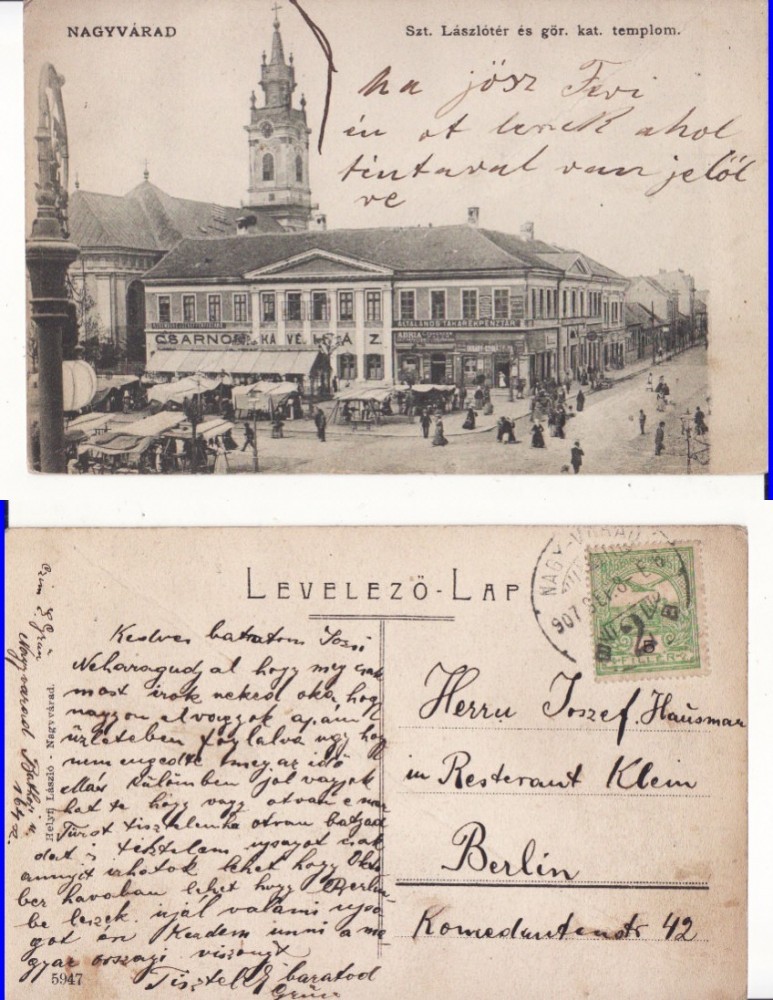 NAGYVÁRAD
Szt. Lászlótér és gör. kat. templom.
ha jösz Feri
én ot leszek ahol
tintaval van jelöl
ve
CSARNOK KÁVÉHÁZ
ÁLTALÁNOS TAKARÉKPÉNZTÁR
ADRIA
LEVELEZŐ-LAP
NAGY-VÁRAD
907
FILLÉR
Kedves baratom Jozsi
Neharagudjal hogy meg csak
most irok neked oka hogy
nagyon el vagyok apám
üzleteben foglalva ugy hogy
nem engedte meg az idő
Már külömben jol vagyok
hat te hogy vagy otvan e mar
Fürst tisztelem ha otvan batyad
dat is tisztelem ujsagot csak
annyit irhatok lehet hogy Okto
ber havaban lehet hogy Berlin
be leszek irjál valami ujsa
got én Kezdem unni a ma
gyar orszagi viszonyt
Tisztel baratod
Grün
Czim Grün
Nagyvarad
Helyfi László - Nagyvárad.
5947
Herrn Joszef Hausman
in Resterant Klein
Berlin
Komedantenstr 42